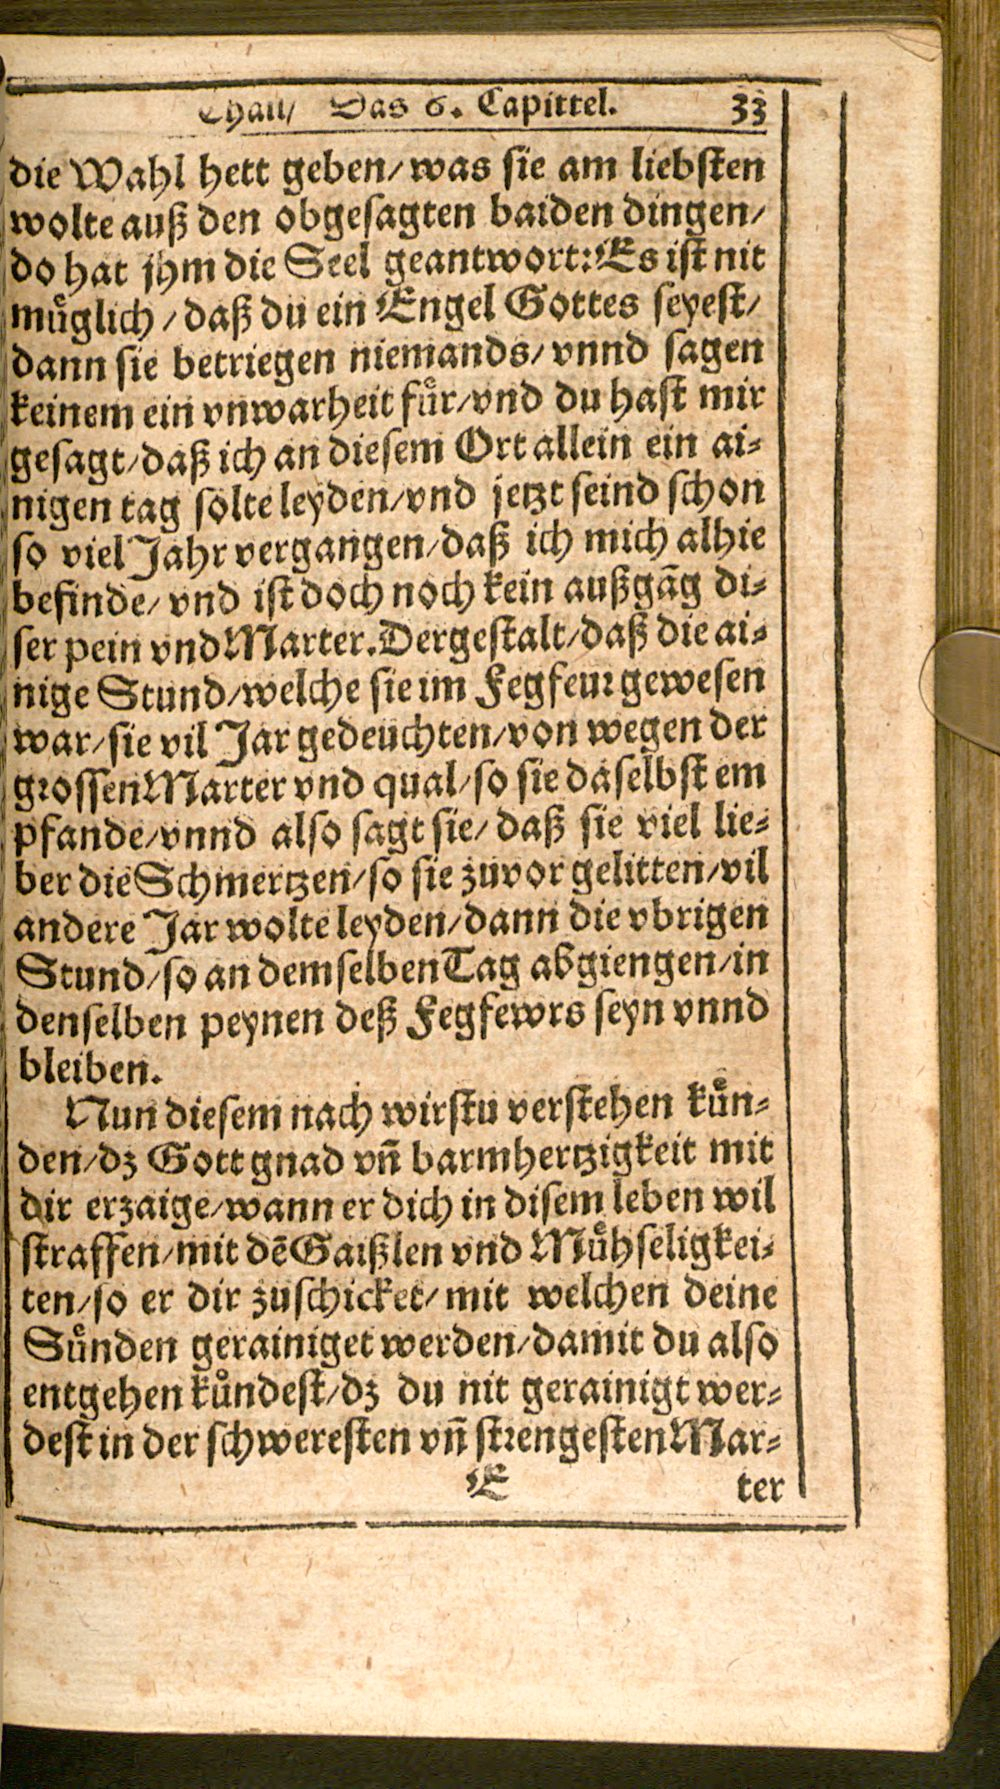 Thail/ Das 6. Capittel. 33
die Wahl hett geben/was sie am liebsten
wolte auß den obgesagten baiden dingen/
do hat jhm die Seel geantwort: Es ist nit
muͤglich/daß du ein Engel Gottes seyest/
dann sie betriegen niemands/vnnd sagen
keinem ein vnwarheit fuͤr/vnd du hast mir
gesagt/daß ich an diesem Ort allein ein ai-
nigen tag solte leyden/vnd jetzt seind schon
so viel Jahr vergangen/daß ich mich alhie
befinde/vnd ist doch noch kein außgãg di-
ser pein vnd Marter. Dergestalt/daß die ai-
nige Stund/welche sie im Fegfeur gewesen
war/sie vil Jar gedeuchten/von wegen der
grossen Marter vnd qual/so sie daselbst em
pfande/vnnd also sagt sie/daß sie viel lie-
ber die Schmertzen/so sie zuvor gelitten/vil
andere Jar wolte leyden/dann die vbrigen
Stund/so an demselben Tag abgiengen/in
denselben peynen deß Fegfewrs seyn vnnd
bleiben.
Nun diesem nach wirstu verstehen kuͤn-
den/dz Gott gnad vñ barmhertzigkeit mit
dir erzaige/wann er dich in disem leben wil
straffen/mit dẽ Gaißlen vnd Muͤhseligkei-
ten/so er dir zuschicket/mit welchen deine
Suͤnden gerainiget werden/damit du also
entgehen kuͤndest/dz du nit gerainigt wer-
dest in der schweresten vñ strengesten Mar-
E ter